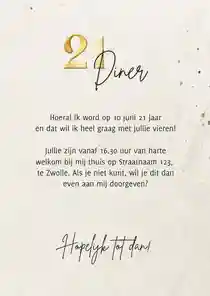 21
Diner
Hoera! Ik word op 10 juni 21 jaar
en dat wil ik heel graag met jullie vieren!
Jullie zijn vanaf 16.30 uur van harte
welkom bij mij thuis op Straatnaam 123,
te Zwolle. Als je niet kunt, wil je dit dan
even aan mij doorgeven?
Hopelijk tot dan!